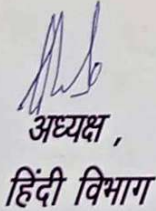 अध्यक्ष ,
हिंदी विभाग